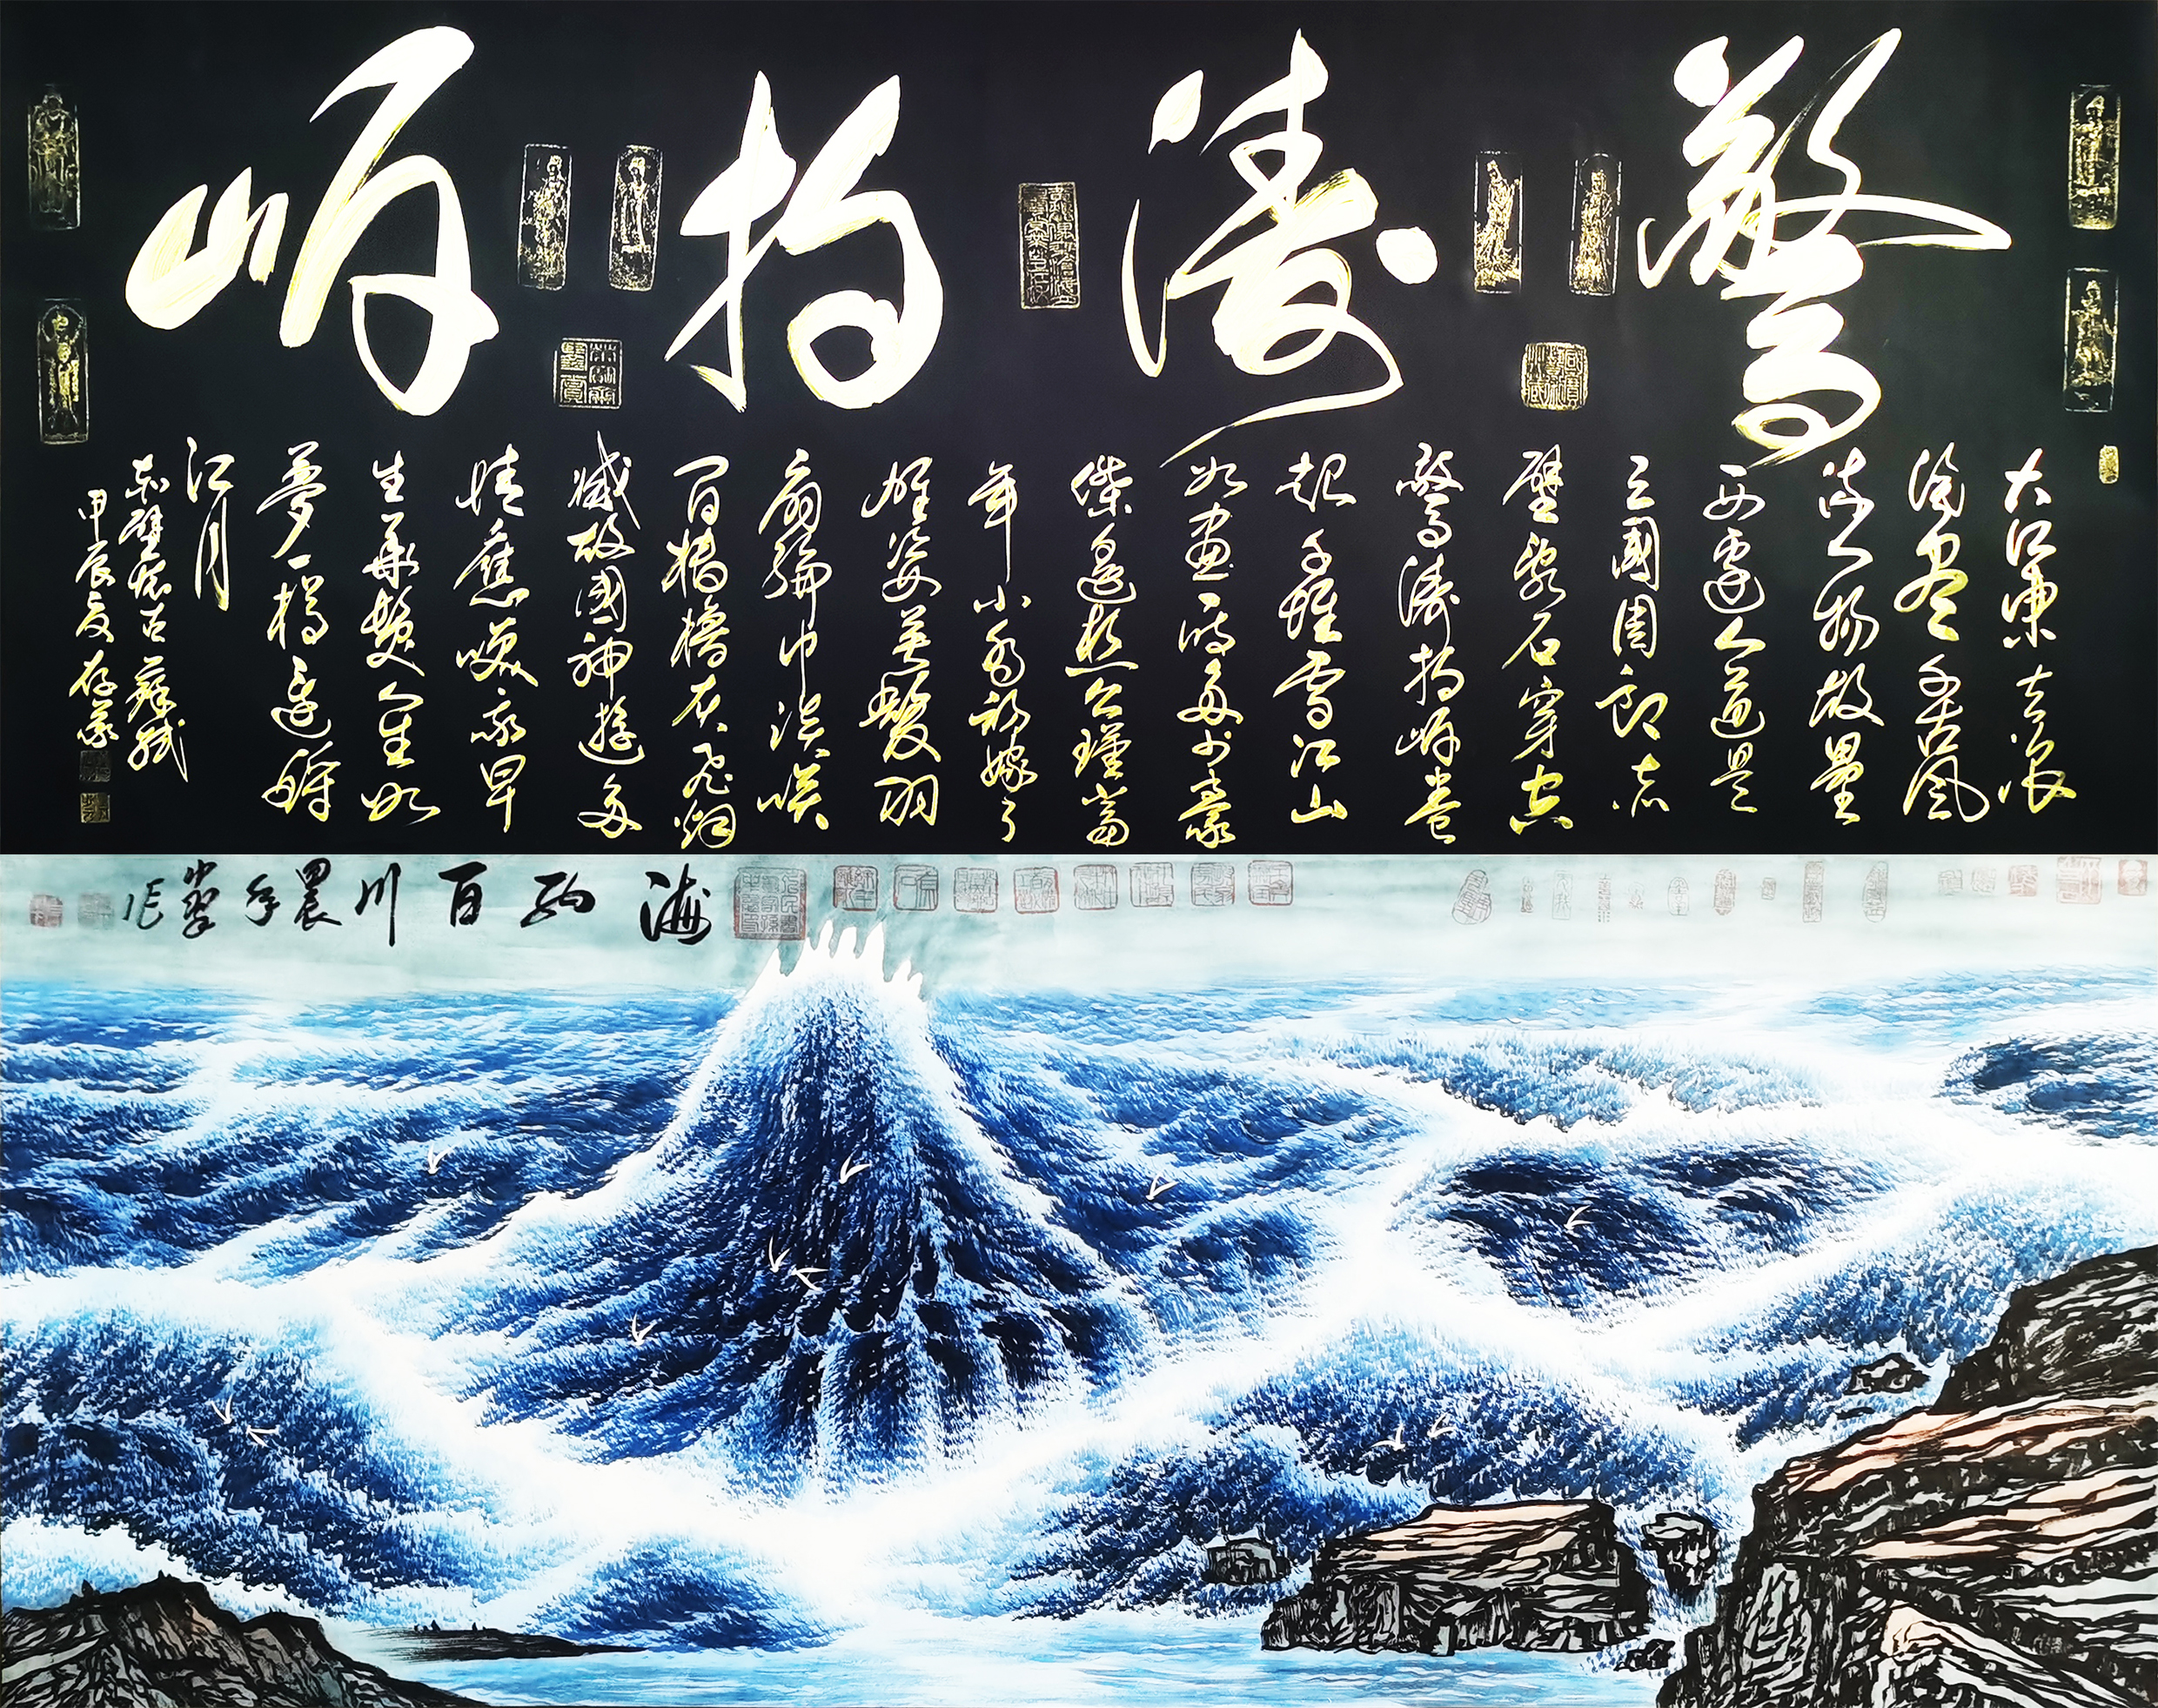 驚濤拍岸
大江東去浪
淘盡千古風
流人物故壘
西邊人道是
三國周郎赤
壁亂石穿空
驚濤拍岸卷
起千堆雪江山
如畫一時多少豪
傑遙想公瑾當
年小喬初嫁了
雄姿英發羽
扇綸巾談笑
間檣櫓灰飛烟
滅故國神遊多
情應笑我早
生華髮人生如
夢一樽還酹
江月
赤壁懷古蘇軾
甲辰夏存
海納百川